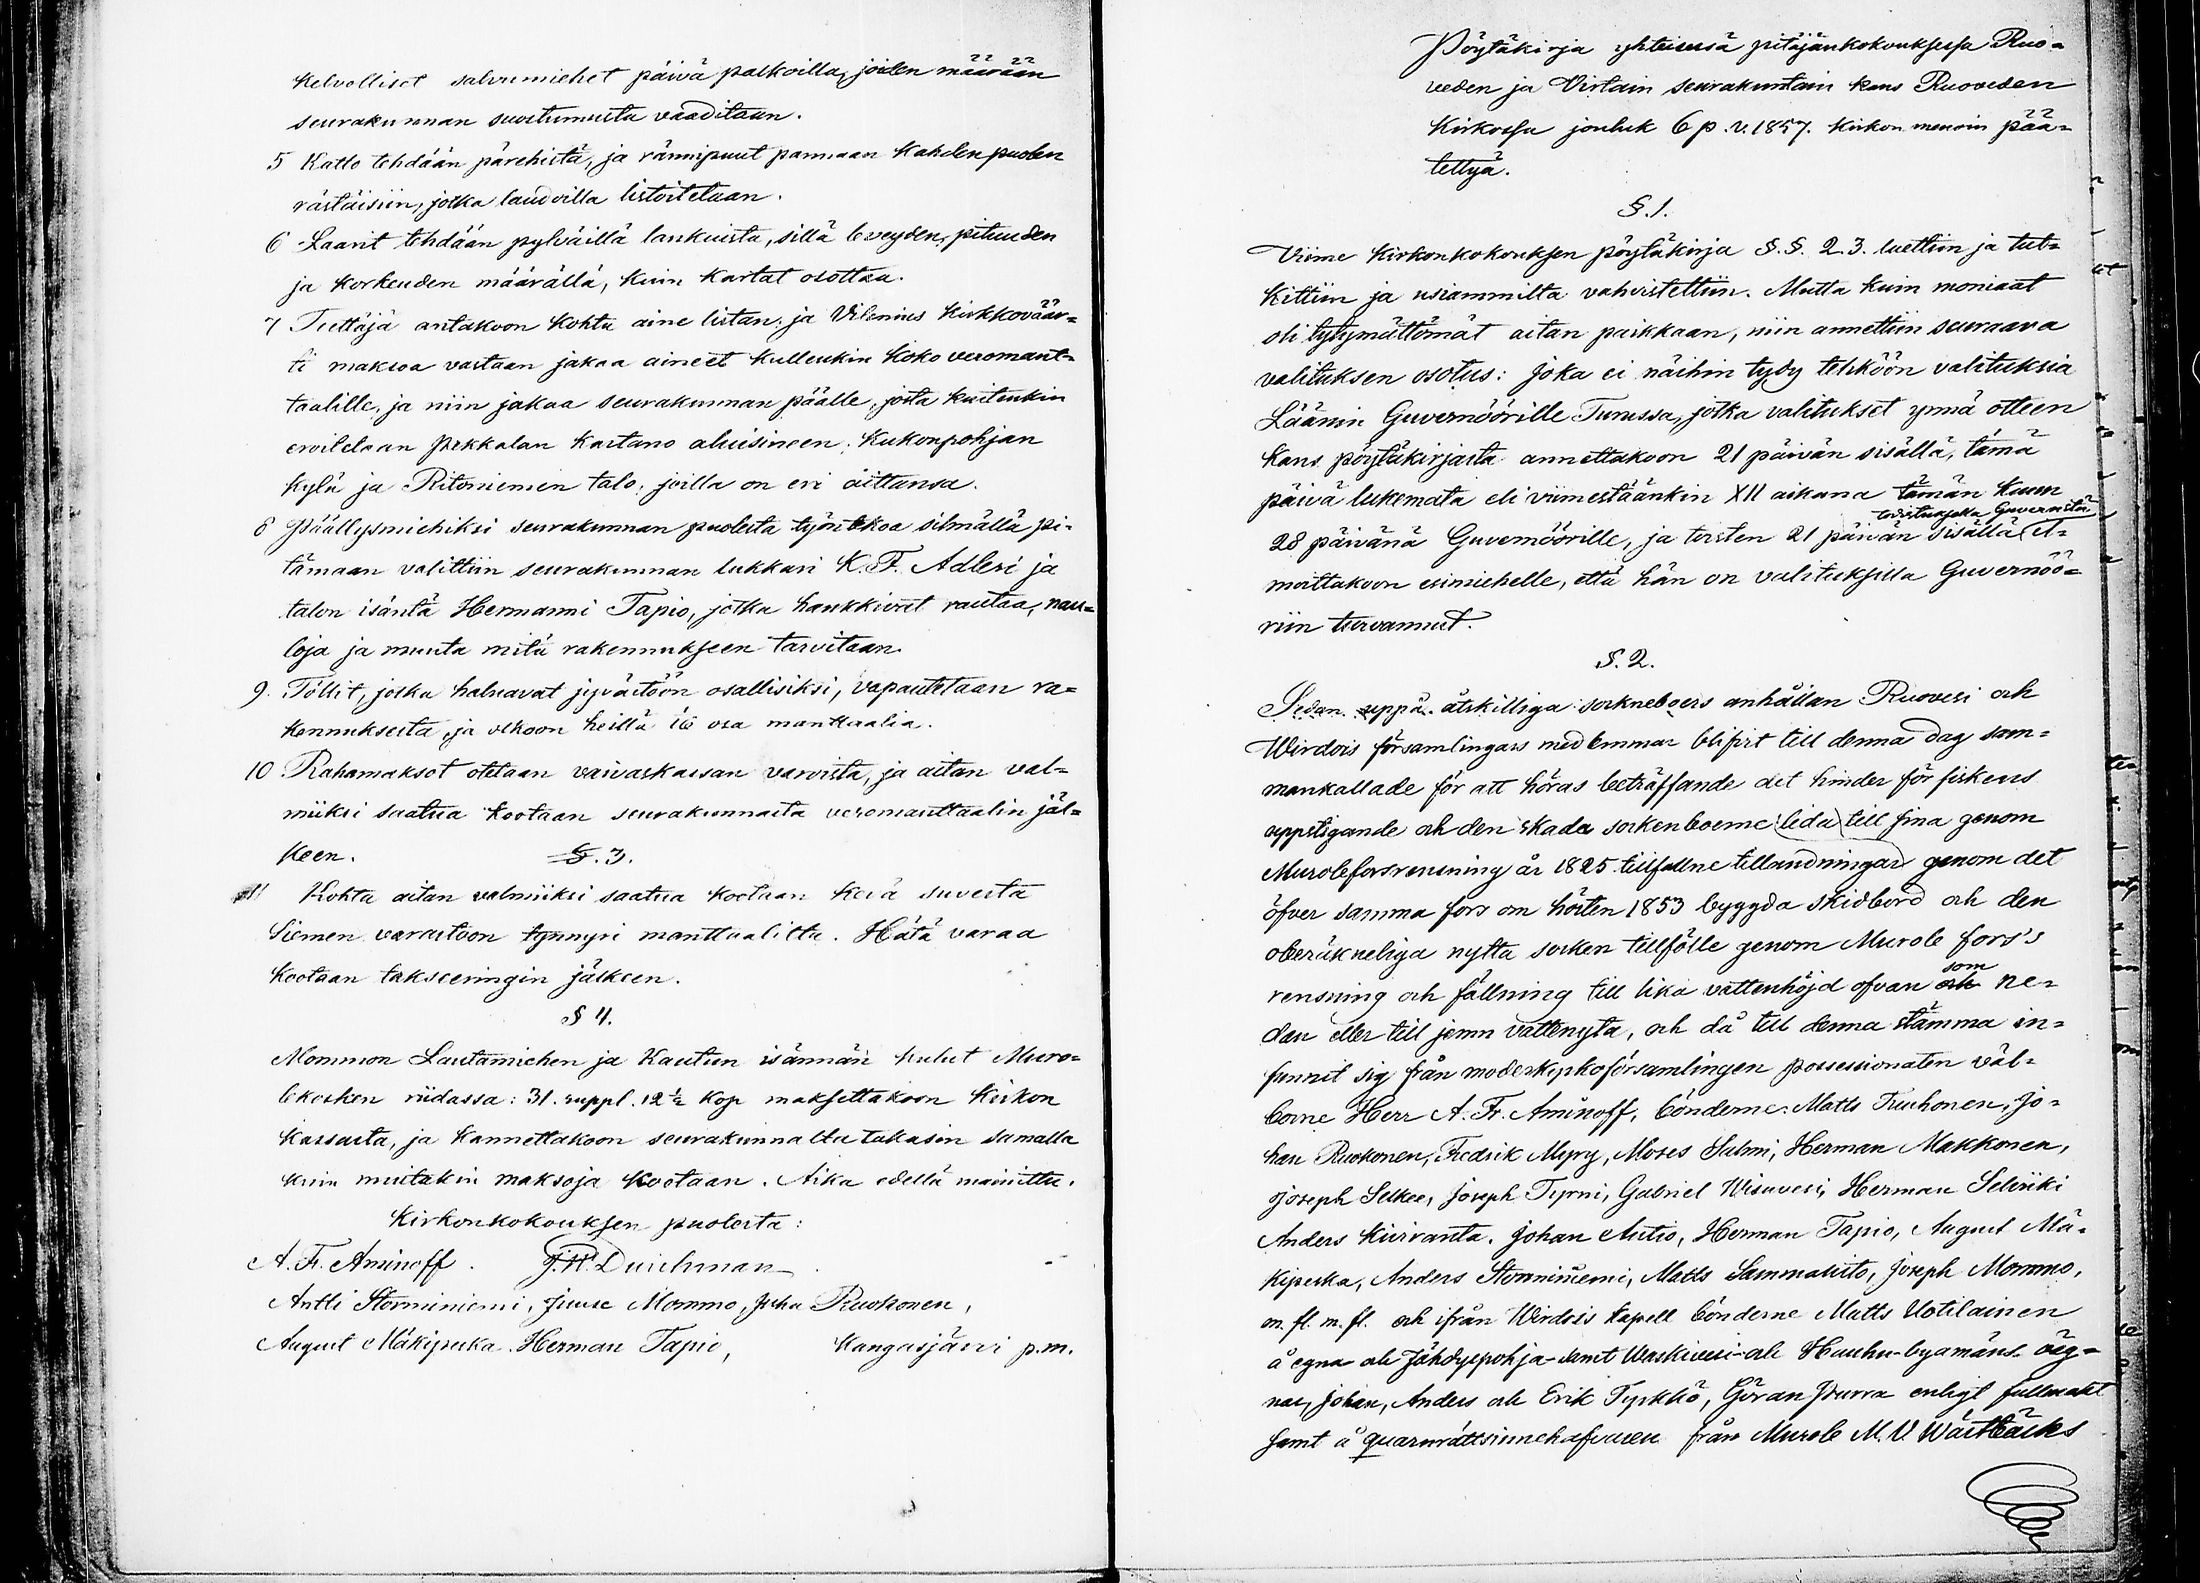 Kelvolliset salvumiehet päivä palkoilla, joiden määrään
seurakunnan suostumusta vaaditaan.
5 Katto tehdään pärehistä, ja rännipuut pannaan kahden puolen
rästäisiin, jotka laudoilla listoitetaan.
6 Laarit tehdään pylväillä lankuista, sillä leveyden, pituuden
ja korkeuden määrällä, kuin kartat osottaa.
7 Teettäjä antakoon kohta aine listan, ja Vilenius Kirkkoväär=
ti maksoa vastaan jakaa aineet kullenkin koko veromant=
taalille, ja niin jakaa seurakunnan päälle, josta kuitenkin
eroitetaan Pekkalan kartano aluisineen, Kukonpohjan
kylä ja Ritoniemen talo, joilla on eri aittansa.
8 Päällysmiehiksi seurakunnan puolesta työn tekoa silmällä pi=
tämään valittiin seurakunnan lukkari K. F. Adleri ja
talon isäntä Hermanni Tapio, jotka hankkivat rautaa, nau=
loja ja muuta mitä rakennukseen tarvitaan.
9. Töllit, jotka haluavat jyvästöön osallisiksi, vapautetaan ra=
kennuksesta, ja olkoon heillä 16 osa manttaalia.
10 Rahamaksot otetaan vaivaskassan varoista, ja aitan val=
miiksi saatua kootaan seurakunnasta veromanttaalin jäl=
keen. §. 3.
11 Kohta aitan valmiiksi saatua kootaan kesä suvesta
Siemen varastoon tynnyri manttaalilta. Hätä varaa
kootaan takseeringin jälkeen.
§ 4.
Mommon Lautamiehen ja Kautun isännän kulut Muro=
lekosken riidassa: 31. ruppl. 12 ½ kop maksettakoon Kirkon
kassasta, ja kannettakoon seurakunnalta takasin samalla
kuin muitakin maksoja kootaan. Aika edellä mainittu.
Kirkonkokouksen puolesta:
A. F. Aminoff. J. W. Durchman
Antti Storminiemi, Juuse Mommo, Juha Ruokonen,
August Mäkipeska. Herman Tapio, Kangasjärvi p.m.
Pöytäkirja yhteisessä pitäjänkokouksessa Ruo=
veden ja Virtain seurakuntain kans Ruoveden
Kirkossa jouluk 6 p. v. 1857. Kirkon menoin pää=
tettyä.
§. 1.
Viime Kirkonkokouksen pöytäkirja §. §. 2. 3. luettiin ja tut=
kittiin ja usiammilta vahvistettiin. Mutta kuin moniaat
oli tytymättömät aitan paikkaan, niin annettiin seuraava
valituksen osotus: joka ei näihin tydy tehköön valituksia
Läänin Guvernöörille Turussa, jotka valitukset ynnä otteen
kans pöytäkirjasta annettakoon 21 päivän sisällä, tämä
päivä lukemata eli viimestäänkin XII aikana tämän kuun
28 päivänä Guvernöörille, ja toisten 21 päivän sisällä
moittakoon esimiehelle, että hän on valituksilla Guvernöö=
riin turvannut.
§. 2.
Sedan uppå åtskilliga sockneboers anhållan Ruovesi och
Wirdois församlingars medlemmar blifvit till denna dag sam=
mankallade för att höras beträffande det hinder för fiskens
uppstigande och den skada sockenboerne lida till sina genom
Muroleforsrensning år 1825 tillfallne tillandningar genom det
öfver samma fors om hösten 1853 byggda skidbord och den
oberäkneliga nytta socken tillfölle genom Murole fors's
rensning och fällning till lika vattenhöjd ofvan och som ne=
dan eller till jemn vattenyta, och då till denna stämma in=
funnit sig från moderkyrkoförsamlingen possessionaten väl=
borne Herr A. Fr. Aminoff, bönderne Matts Tuuhonen, Jo=
han Ruokonen, Fredrik Myry, Moses Salmi, Herman Makkonen,
Joseph Selkee, Joseph Tyrni, Gabriel Wisuvesi, Herman Seliniki
Anders Kuivanta. Johan Autio, Herman Tapio, August Mä=
kipeska, Anders Storminiemi, Matts Sammalisto, Joseph Mommo,
m. fl. m. fl. och ifrån Wirdois kapell bönderne Matts Uotilainen
å egna och Jähdyspohja samt Waskivesi och Hauhu-byamäns väg=
nar, Johan, Anders och Erik Tyrkkö, Göran Purra enligt fullmakt
samt å quarnrättsinnehafvaren från Murole M. V. Wästbäcks